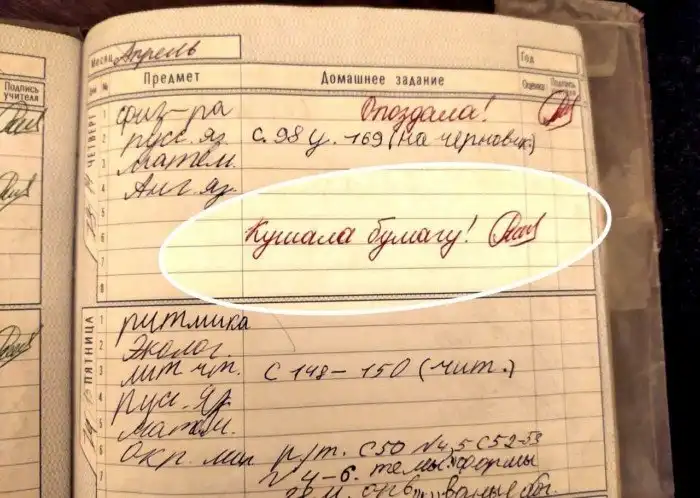 Подпись учителя
Месяц Апрель
Год
№ Предмет Домашнее задание Оценка Подпись
ЧЕТВЕРГ
1 физ-ра Опоздала!
2 русс. яз. с. 98 у. 169 (на чернович.)
3 матем.
4 Анг. яз.
5
6 Кушала бумагу!
7
8
ПЯТНИЦА
1 ритмика
2 Эколог
3 лит чт. с 148-150 (чит.)
4 русс. яз.
5 матем.
6 окр. мир р/т. с50 №4,5 с52-53
7 №4-6. темы: формы